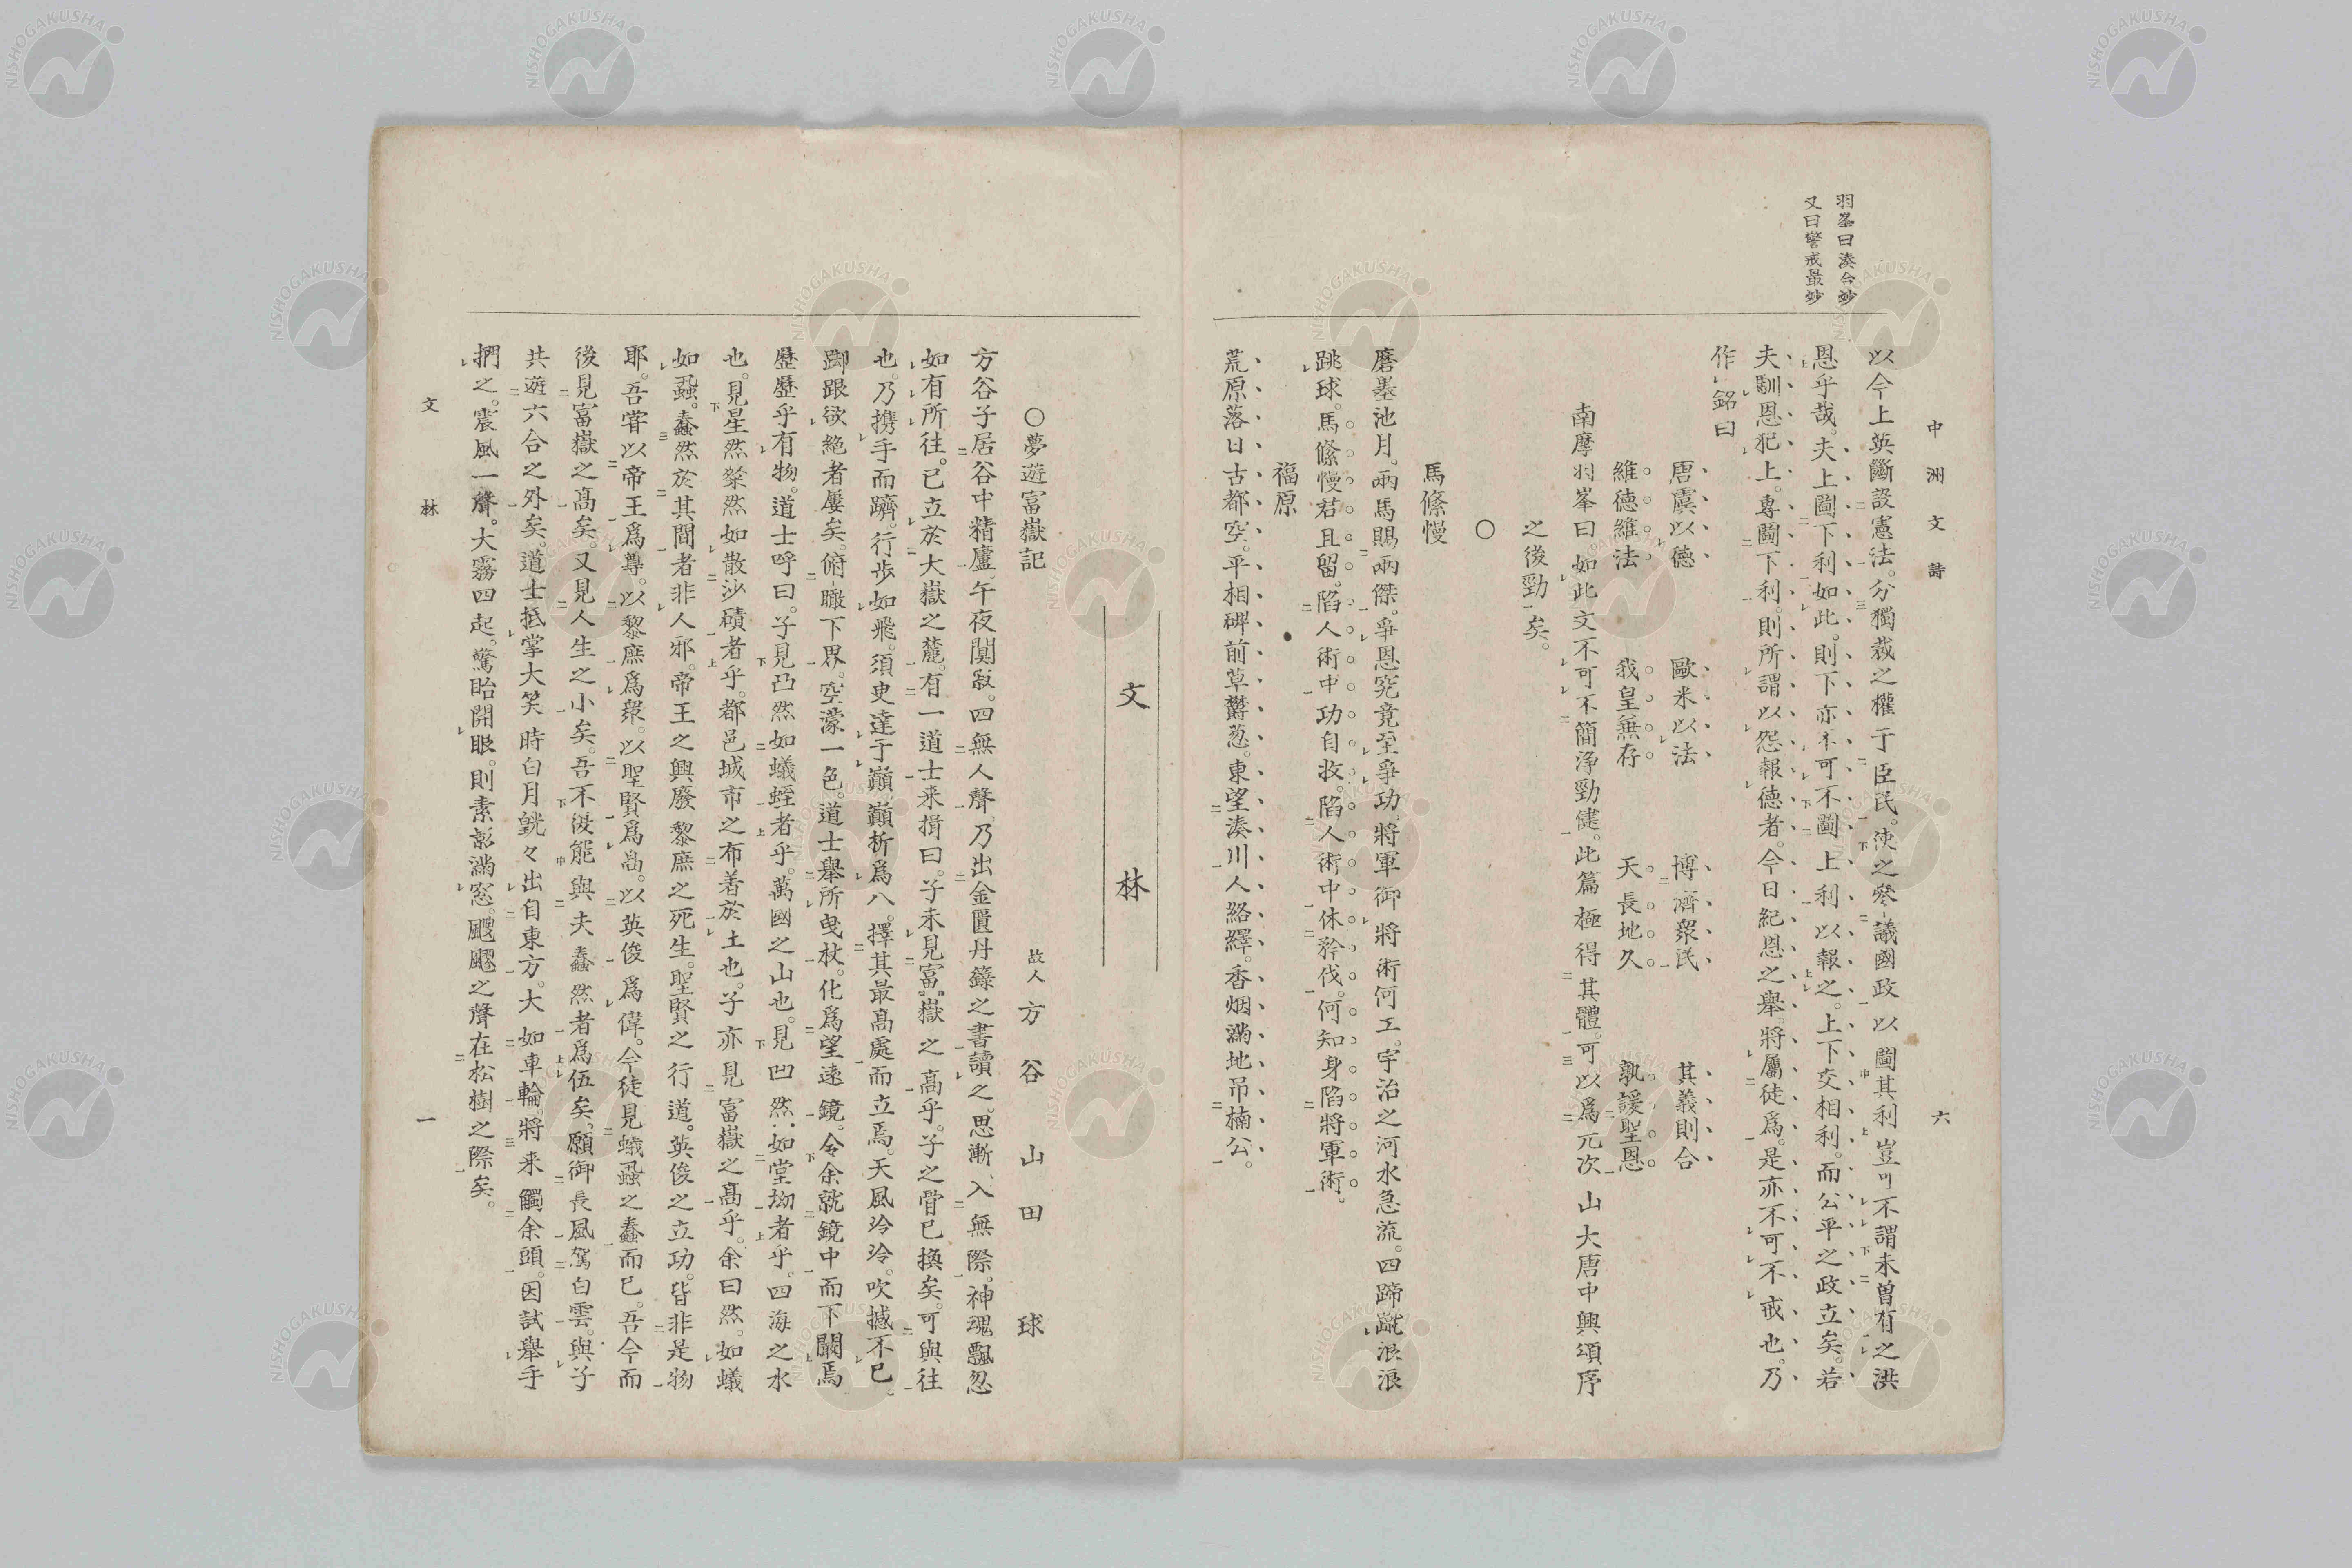 中洲文詩 六
羽峯曰湊合妙
又曰警戒最妙
以今上英斷設憲法。分獨裁之權于臣民。使之參議國政以圖其利豈可不謂未曾有之洪
恩乎哉。夫上圖下利如此。則下亦不可不圖上利以報之。上下交相利。而公平之政立矣。若
夫馴恩犯上。專圖下利。則所謂以怨報德者。今日紀恩之舉。將屬徒爲。是亦不可不戒也。乃
作銘曰
唐虞以德 歐米以法 博濟衆民 其義則合
維德維法 我皇兼存 天長地久 孰諼聖恩
南摩羽峯曰如此文不可不簡淨勁健。此篇極得其體。可以爲元次山大唐中興頌序
之後勁矣。
〇
馬絛慢
磨墨池月。兩馬賜兩傑。爭恩究竟至爭功。將軍御將術何工。宇治之河水急流。四蹄蹴浪浪
跳球。馬絛慢若且留。陷人術中功自收。陷人術中休矜伐。何知身陷將軍術。
福原
荒原落日古都空。平相碑前草鬱葱。東望湊川人絡繹。香烟滿地吊楠公。
文林
〇夢遊富嶽記
故人 方谷 山田 球
方谷子居谷中精廬。午夜闃寂。四無人聲。乃出金匱丹籙之書讀之。思漸入無際。神魂飄忽
如有所往。已立於大嶽之麓。有一道士来揖曰。子未見富嶽之高乎。子之骨已換矣。可與往
也。乃携手而躋。行步如飛。須臾達于巓。巓析爲八。擇其最高處而立焉。天風泠泠。吹撼不已。
踋跟欲絶者屢矣。俯瞰下界。空濛一色。道士舉所曳杖。化爲望遠鏡。令余就鏡中而下闞焉
歷歷乎有物。道士呼曰。子見凸然如蟻蛭者乎。萬國之山也。見凹然如堂坳者乎。四海之水
也。見星然粲然如散沙磧者乎。都邑城市之布着於土也。子亦見富嶽之高乎。余曰然。如蟻
如蝨。蠢然於其間者非人邪。帝王之興廢黎庶之死生。聖賢之行道。英俊之立功。皆非是物
耶。吾甞以帝王爲尊。以黎庶爲衆。以聖賢爲高。以英俊爲偉。今徒見蟻蝨之蠢而已。吾今而
後見富嶽之高矣。又見人生之小矣。吾不復能與夫蠢然者爲伍矣。願御長風駕白雲。與子
共遊六合之外矣。道士抵掌大笑時白月皝々出自東方。大如車輪。將来觸余頭。因試舉手
捫之。震風一聲。大霧四起。驚眙開眼。則素彩滿窓。颼颼之聲在松樹之際矣。
文林 一